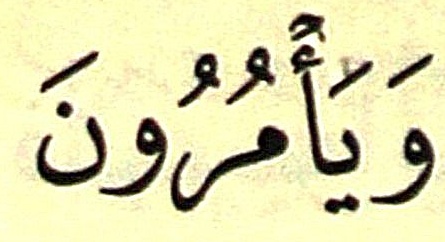 وَيَأۡمُرُونَ